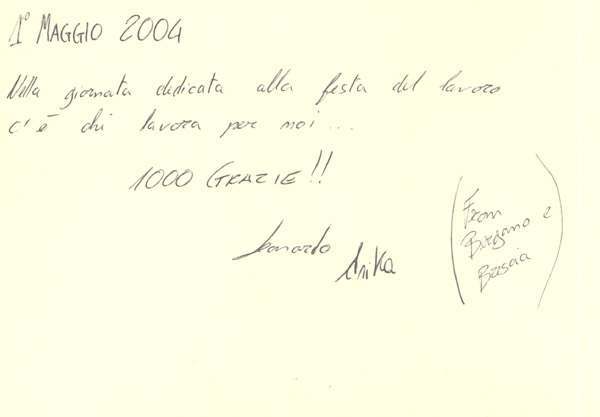 1° MAGGIO 2004
Nella giornata dedicata alla festa del lavoro
c'è chi lavora per noi...
1000 GRAZIE!!
Leonardo
Anika
(From
Bergamo e
Brescia)